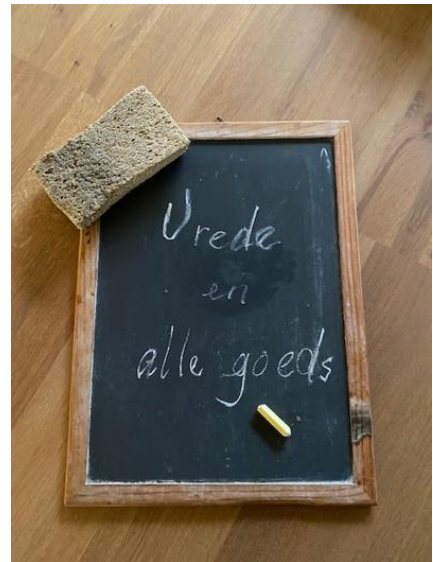 Vrede
en
alle goeds